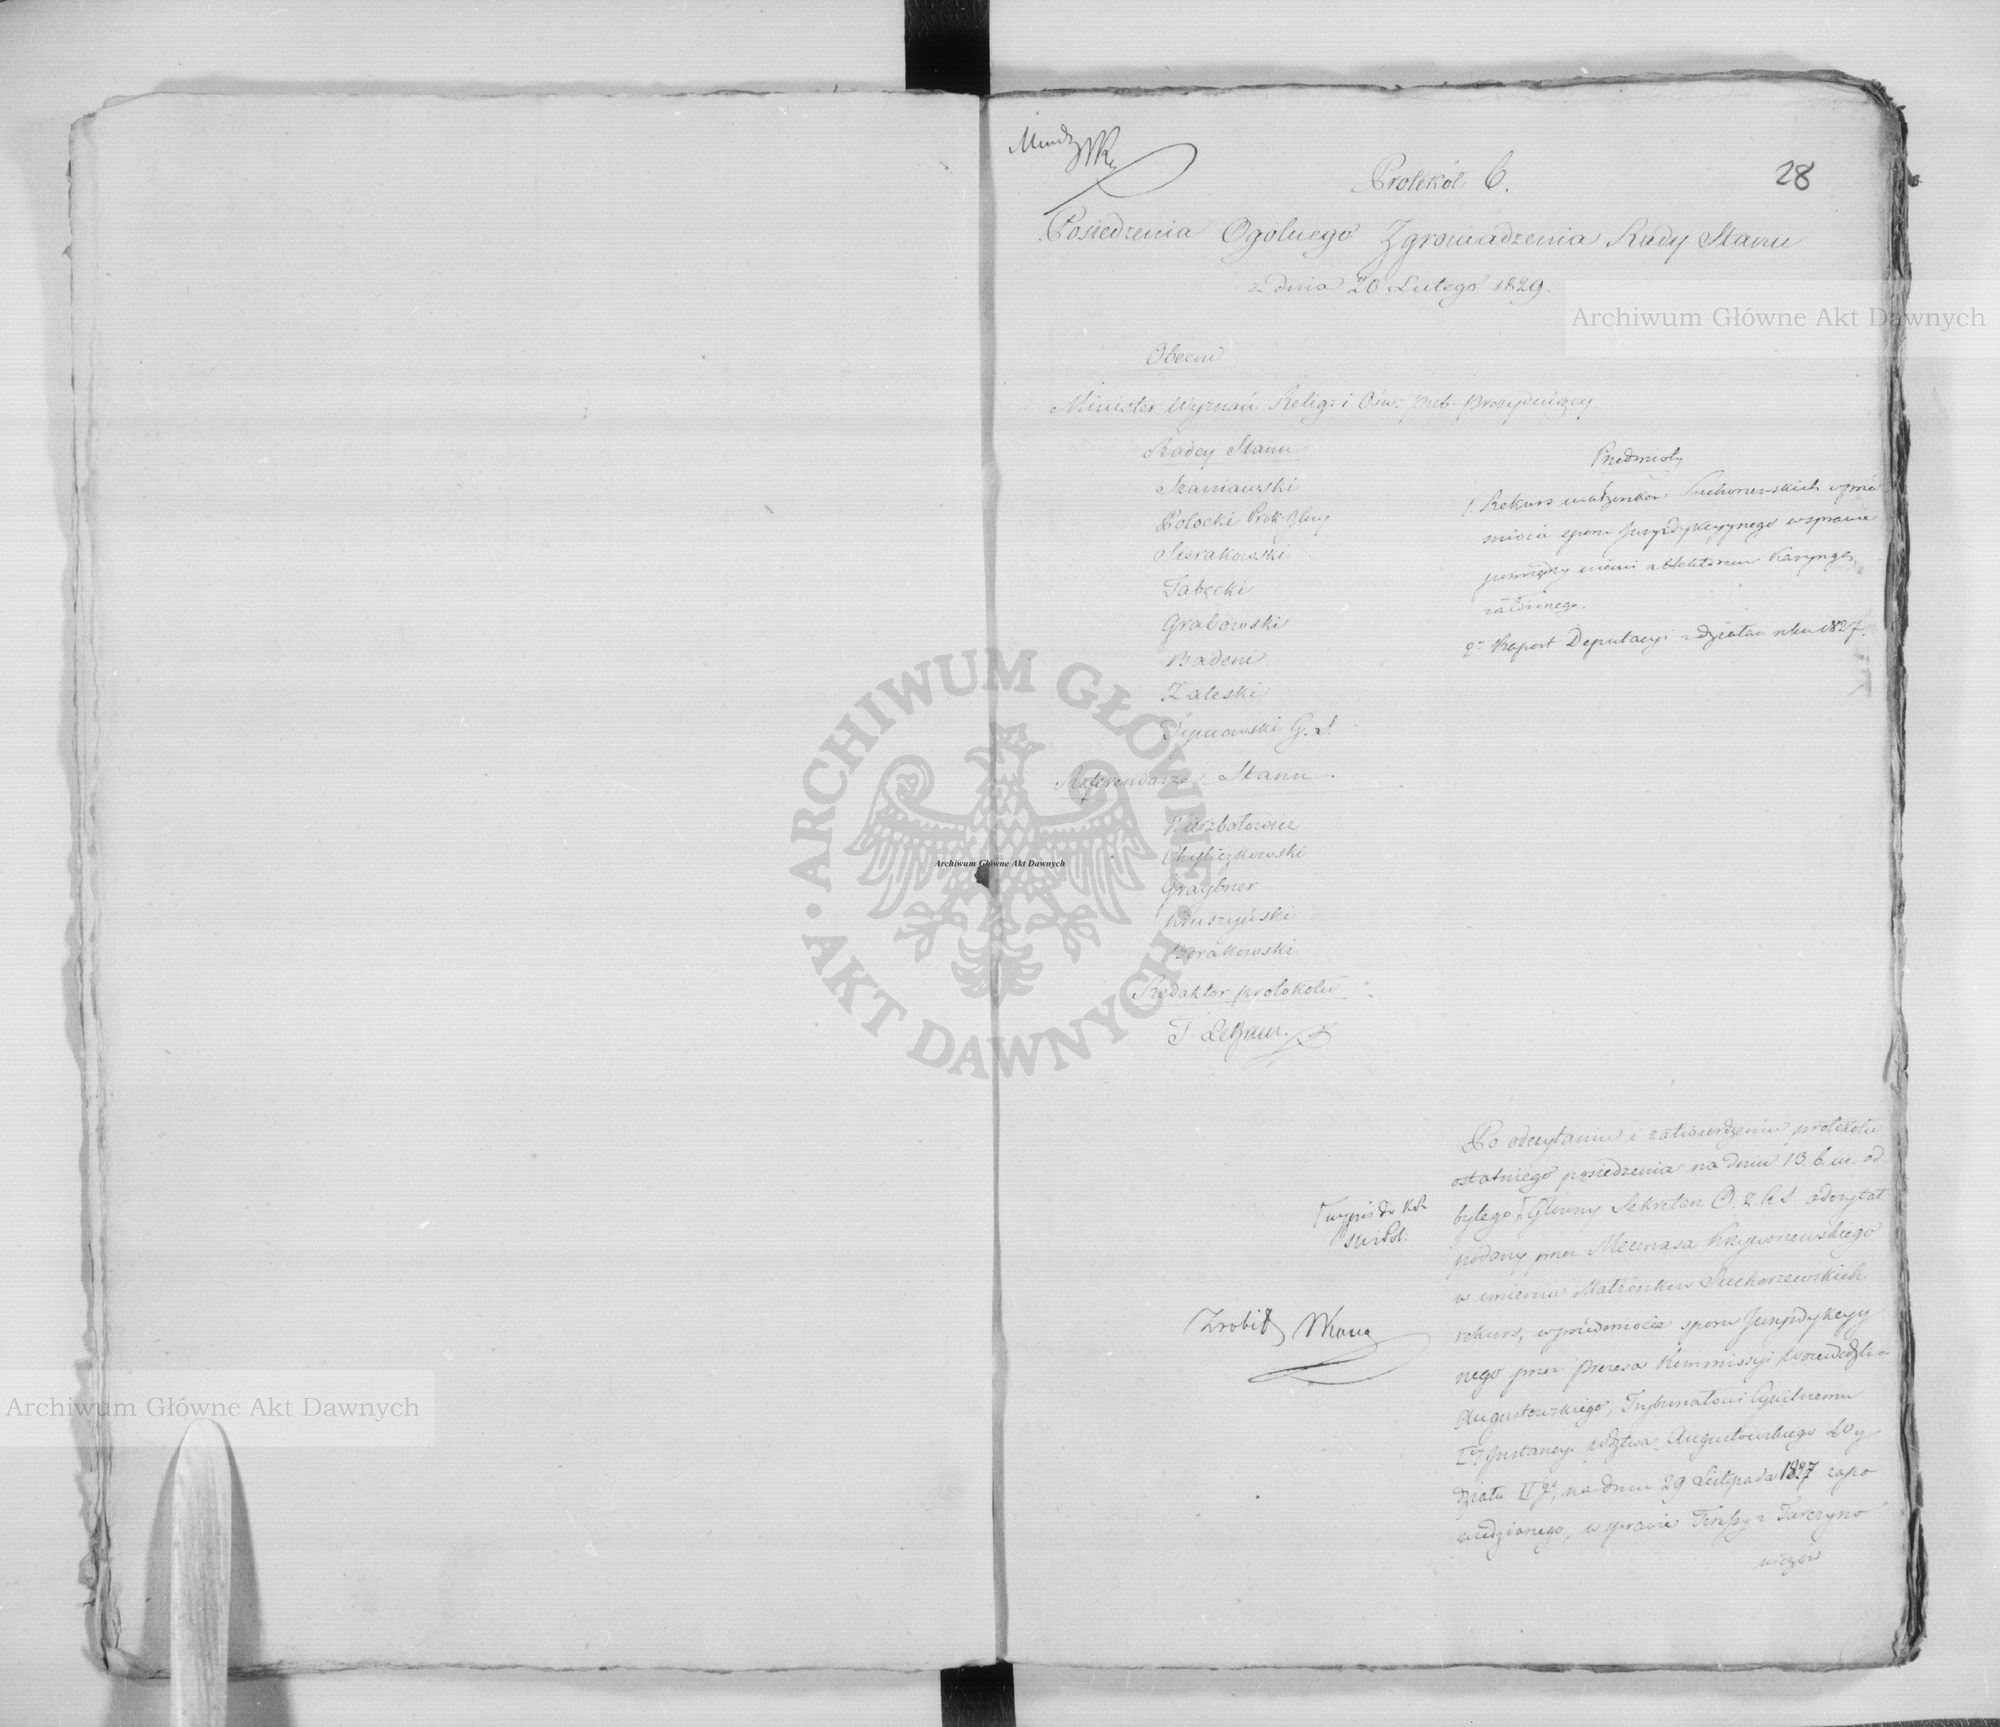 28
Protokół 6.
Posiedzenia Ogólnego Zgromadzenia Rady Stanu
z dnia 20 Lutego 1829.
Archiwum Główne Akt Dawnych
Obecni
Minister Wyznań Relig: i Ośw: pub. prezydujący
Radcy Stanu
Szaniawski
Potocki Prok. Jlny
Sierakowski
Tabęcki
Grabowski
Badeni
Zaleski
Tymowski G. S.
Referendarze Stanu.
Wierzbołowicz
Chyliczkowski
Graybner
Kruszyński
Borakowski
Redaktor protokółu
T. LeBrun.
Przedmioty
1. Rekurs małżonków Suchorzewskich w przed
miocie sporu Juryzdykcyynego w sprawie
pomiędzy niemi a Elektorem Karyngą
założonego.
2. Raport Deputacyi z działań roku 1827.
ARCHIWUM GŁÓWNE · AKT DAWNYCH ·
Archiwum Główne Akt Dawnych
Po odczytaniu i zatwierdzeniu protokółu
ostatniego posiedzenia na dniu 13. b. m. od
byłego Główny Sekretarz O. Z. R. S. odczytał
podany przez Mecenasa Krzywoszewskiego
w imieniu Małżonków Suchorzewskich
rekurs, w przedmiocie sporu Juryzdykcyy
nego przez Prezesa Kommissyi Woiewództwa
Augustowskiego, Trybunałowi Cywilnemu
Iey Instancyi Wdztwa Augustowskiego Wy
działu II go, na dniu 29 Listopada 1827 zapo
wiedzianego, w sprawie Teressy z Turczyno
wiczów
wypis do
Zrobił
Archiwum Główne Akt Dawnych